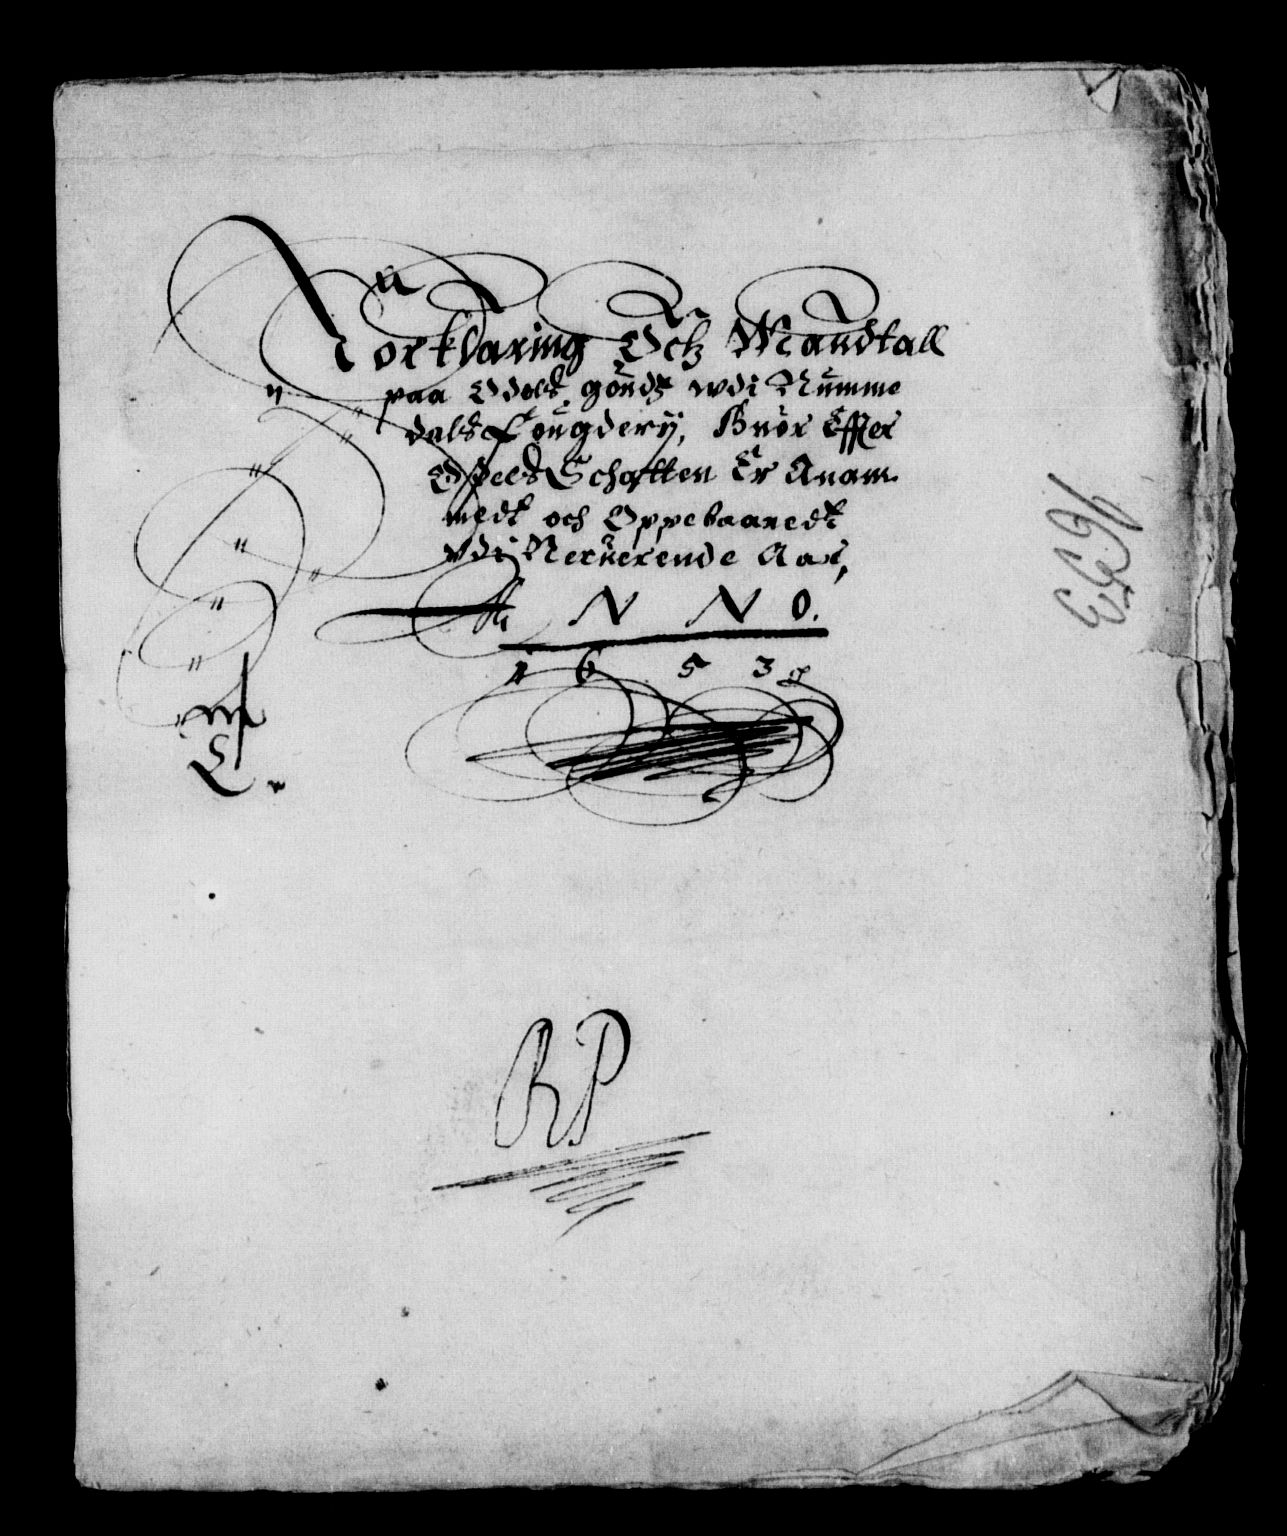 Forklaring Och Mandtall
paa Odels goudz wdi Numme
dals Fougderij, Huor Effter
Odells Schatten Er Anam
medt och Oppebaaredt
Vdi Neruerende Aar,
A N N O.
1 6 5 3
M
L
RP
1653